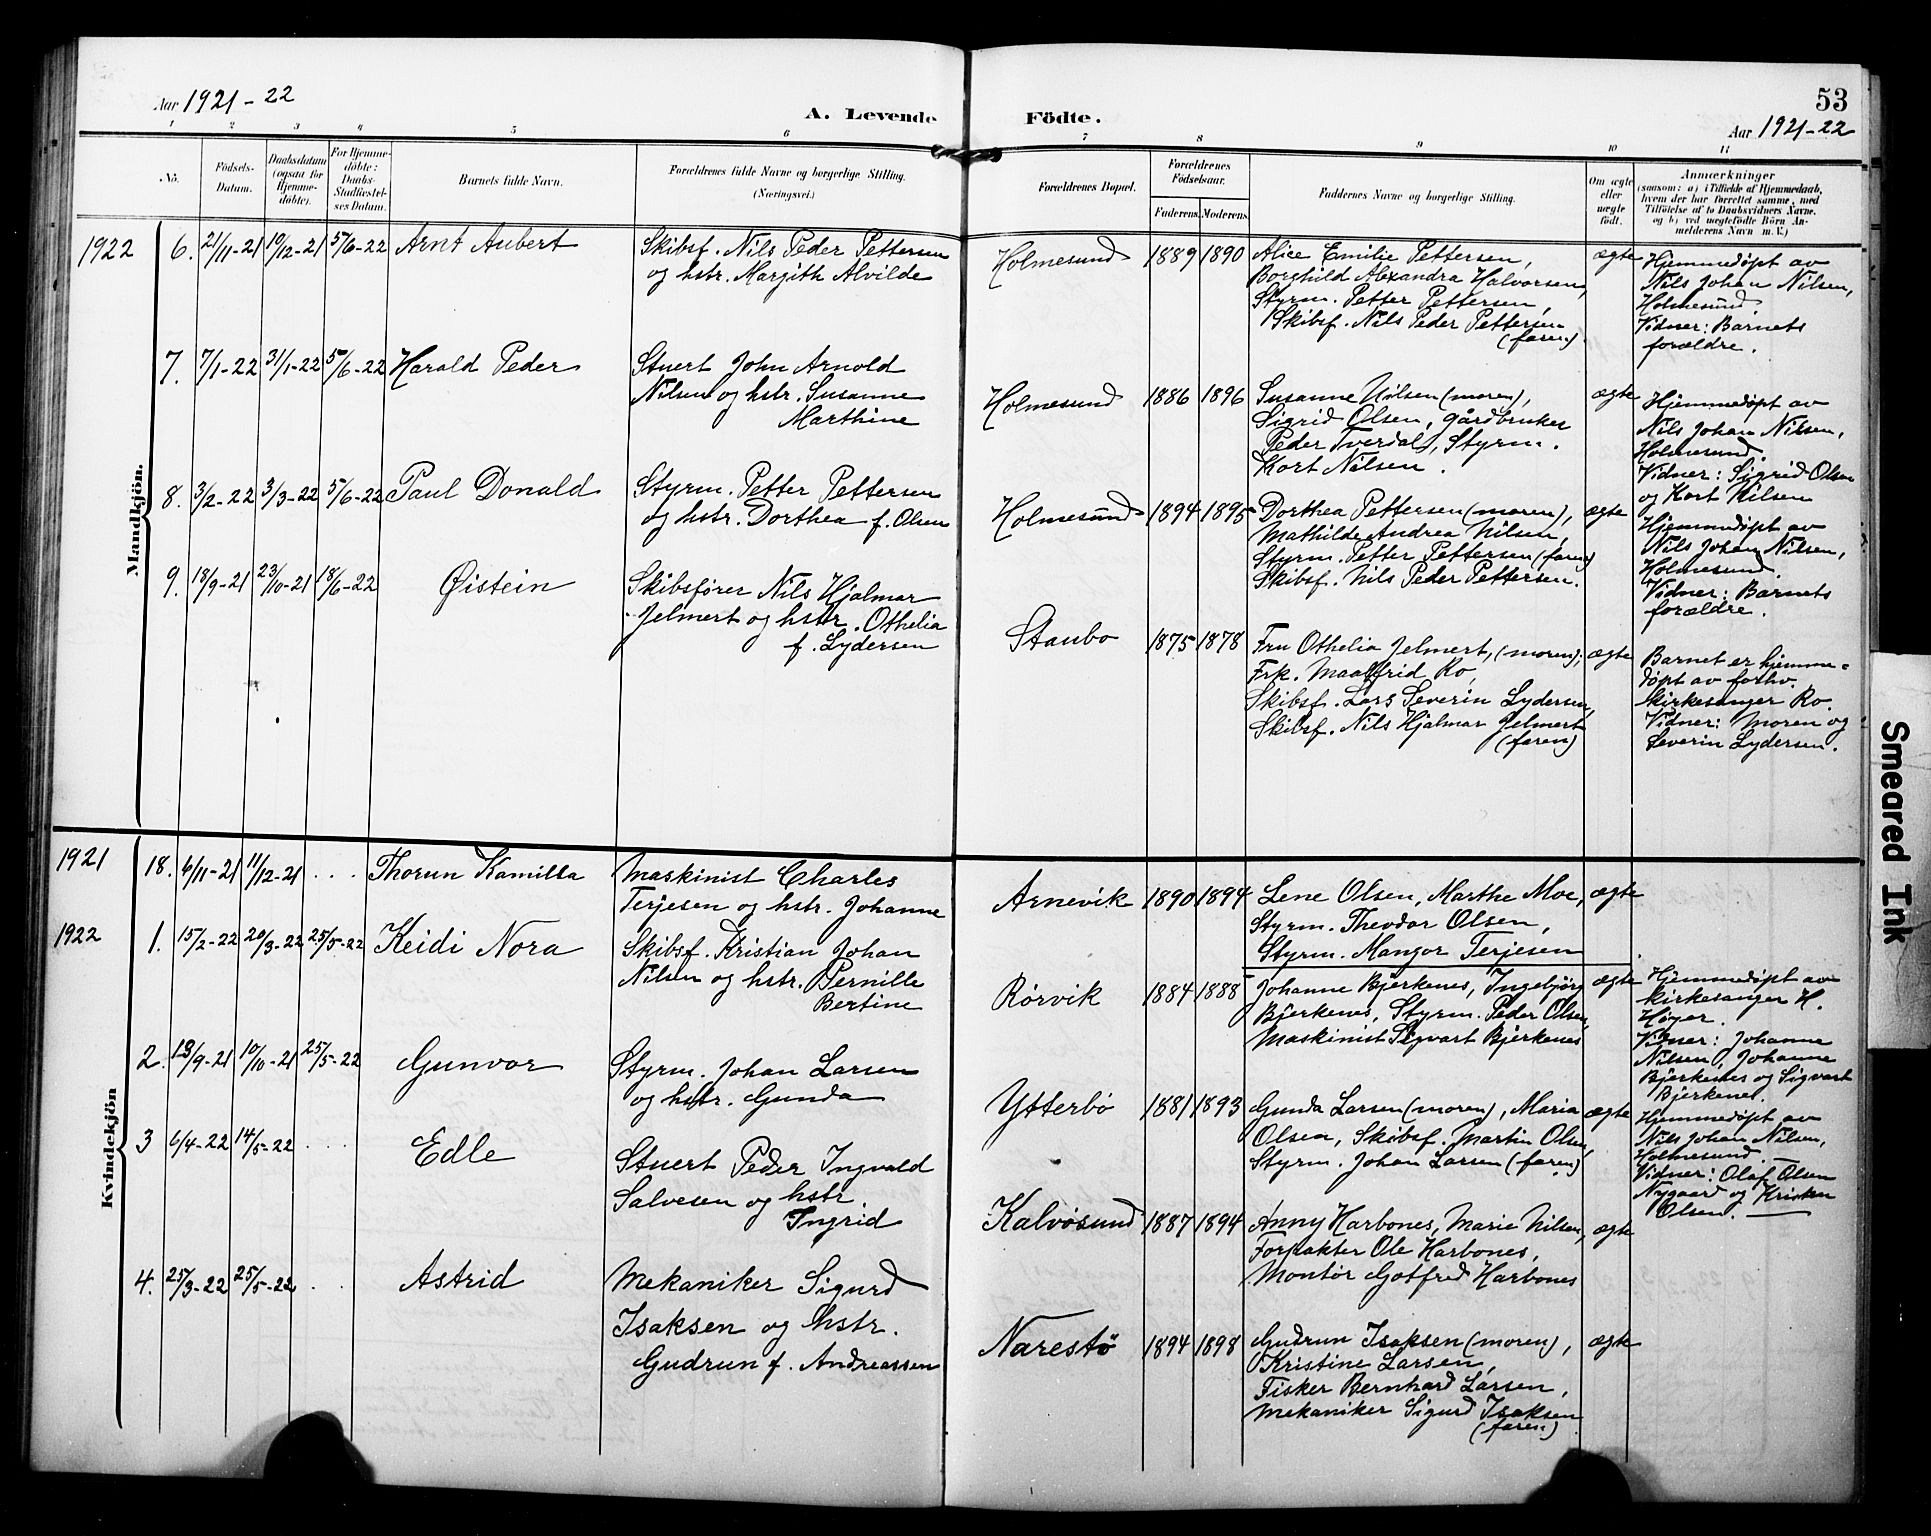 Aar 1921-22
A. Levende Födte.
53
Aar 1921-22
1 2 3 4 5 6 7 8 9 10 11
No.
Födsels-
Datum.
Daabsdatum
(ogsaa for
Hjemme-
döbte).
For Hjemme-
döbte:
Daabs-
Stadfæstel-
ses Datum.
Barnets fulde Navn.
Forældrenes fulde Navne og borgerlige Stilling.
(Næringsvei.)
Forældrenes Bopæl.
Forældrenes
Födselsaar.
Faderens. Moderens.
Faddernes Navne og borgerlige Stilling.
Om ægte
eller
uægte
födt.
Anmærkninger
(saasom: a) i Tilfælde af Hjemmedaab,
hvem der har forrettet samme, med
Tilföielse af to Daabsvidners Navne.
og b) ved uægtefödte Börn An-
melderens Navn m. V.)
Mandkjön.
1922 6. 21/11-21 10/12-21 5/6-22 Arnt Aubert
Skibsf. Nils Peder Pettersen
og hstr. Margith Alvilde
Holmesund 1889 1890
Alice Emilie Pettersen,
Borghild Alexandra Halvorsen,
Styrm. Petter Pettersen,
Skibsf. Nils Peder Pettersen
(faren)
ægte
Hjemmedøpt av
Nils Johan Nilsen,
Holmesund.
Vidner: Barnets
forældre.
7. 7/1-22 31/1-22 5/6-22 Harald Peder
Stuert John Arnold
Nilsen og hstr. Susanne
Marthine
Holmesund 1886 1896
Susanne Nilsen (moren),
Sigrid Olsen, gårdbruker
Peder Tverdal, Styrm.
Kort Nilsen.
ægte
Hjemmedøpt av
Nils Johan Nilsen,
Holmesund.
Vidner: Sigrid Olsen
og Kort Nilsen
8. 3/2-22 3/3-22 5/6-22 Paul Donald
Styrm. Petter Pettersen
og hstr. Dorthea f. Olsen
Holmesund 1894 1895
Dorthea Pettersen (moren),
Mathilde Andrea Nilsen,
Styrm. Petter Pettersen (faren)
Skibsf. Nils Peder Pettersen.
ægte
Hjemmedøpt av
Nils Johan Nilsen,
Holmesund.
Vidner: Barnets
forældre.
9. 18/9-21 23/10-21 18/6-22 Øistein
Skibsfører Nils Hjalmar
Jelmert og hstr. Othelia
f. Lydersen
Staubo 1875 1878
Fru Othelia Jelmert, (moren);
Frk. Maalfrid Ro,
Skibsf. Lars Severin Lydersen,
Skibsf. Nils Hjalmar Jelmert
(faren)
ægte
Barnet er hjemme-
døpt av forhv.
kirkesanger Ro.
Vidner: Moren og
Severin Lydersen.
Kvindekjön
1921 18. 6/11-21 11/12-21 . . . Thorun Kamilla
Maskinist Charles
Terjesen og hstr. Johanne
Arnevik 1890 1894
Lene Olsen, Marthe Moe,
Styrm. Theodor Olsen,
Styrm. Mangor Terjesen
ægte
1922 1. 15/2-22 20/3-22 25/5-22 Keidi Nora
Skibsf. Kristian Johan
Nilsen og hstr. Pernille
Bertine
Rørvik 1884 1888
Johanne Bjerkenes, Ingebjørg
Bjerkenes, Styrm. Peder Olsen,
Maskinist Sigvart Bjerkenes
ægte
Hjemmedøpt av
kirkesanger H.
Høyer.
Vidner: Johanne
Nilsen, Johanne
Bjerkenes og Sigvart
Bjerkenes.
2. 19/9-21 10/10-21 25/5-22 Gunvor
Styrm. Johan Larsen
og hstr. Gunda
Ytterbø 1881 1893
Gunda Larsen (moren), Maria
Olsen, Skibsf. Martin Olsen,
Styrm. Johan Larsen (faren)
ægte
Hjemmedøpt av
Nils Johan Nilsen,
Holmesund.
Vidner: Olaf Olsen
Nygaard og Kristen
Olsen.
3 6/4-22 14/5-22 . . . Edle
Stuert Peder Ingvald
Salvesen og hstr.
Ingrid
Kalvøsund 1887 1894
Anny Harbones, Marie Nilsen,
Forpakter Ole Harbones,
Montør Gotfred Harbones
ægte
4. 25/3-22 25/5-22 . . Astrid
Mekaniker Sigurd
Isaksen og hstr.
Gudrun f. Andreassen
Narestø 1894 1898
Gudrun Isaksen (moren),
Kristine Larsen,
Fisker Bernhard Larsen,
Mekaniker Sigurd Isaksen
(faren)
ægte
Smeared Ink